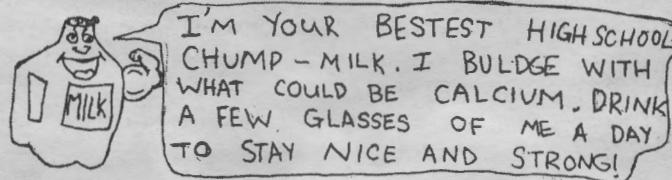 I'M YOUR BESTEST HIGH SCHOOL
CHUMP - MILK. I BULDGE WITH
WHAT COULD BE CALCIUM. DRINK
A FEW GLASSES OF ME A DAY
TO STAY NICE AND STRONG!
MILK